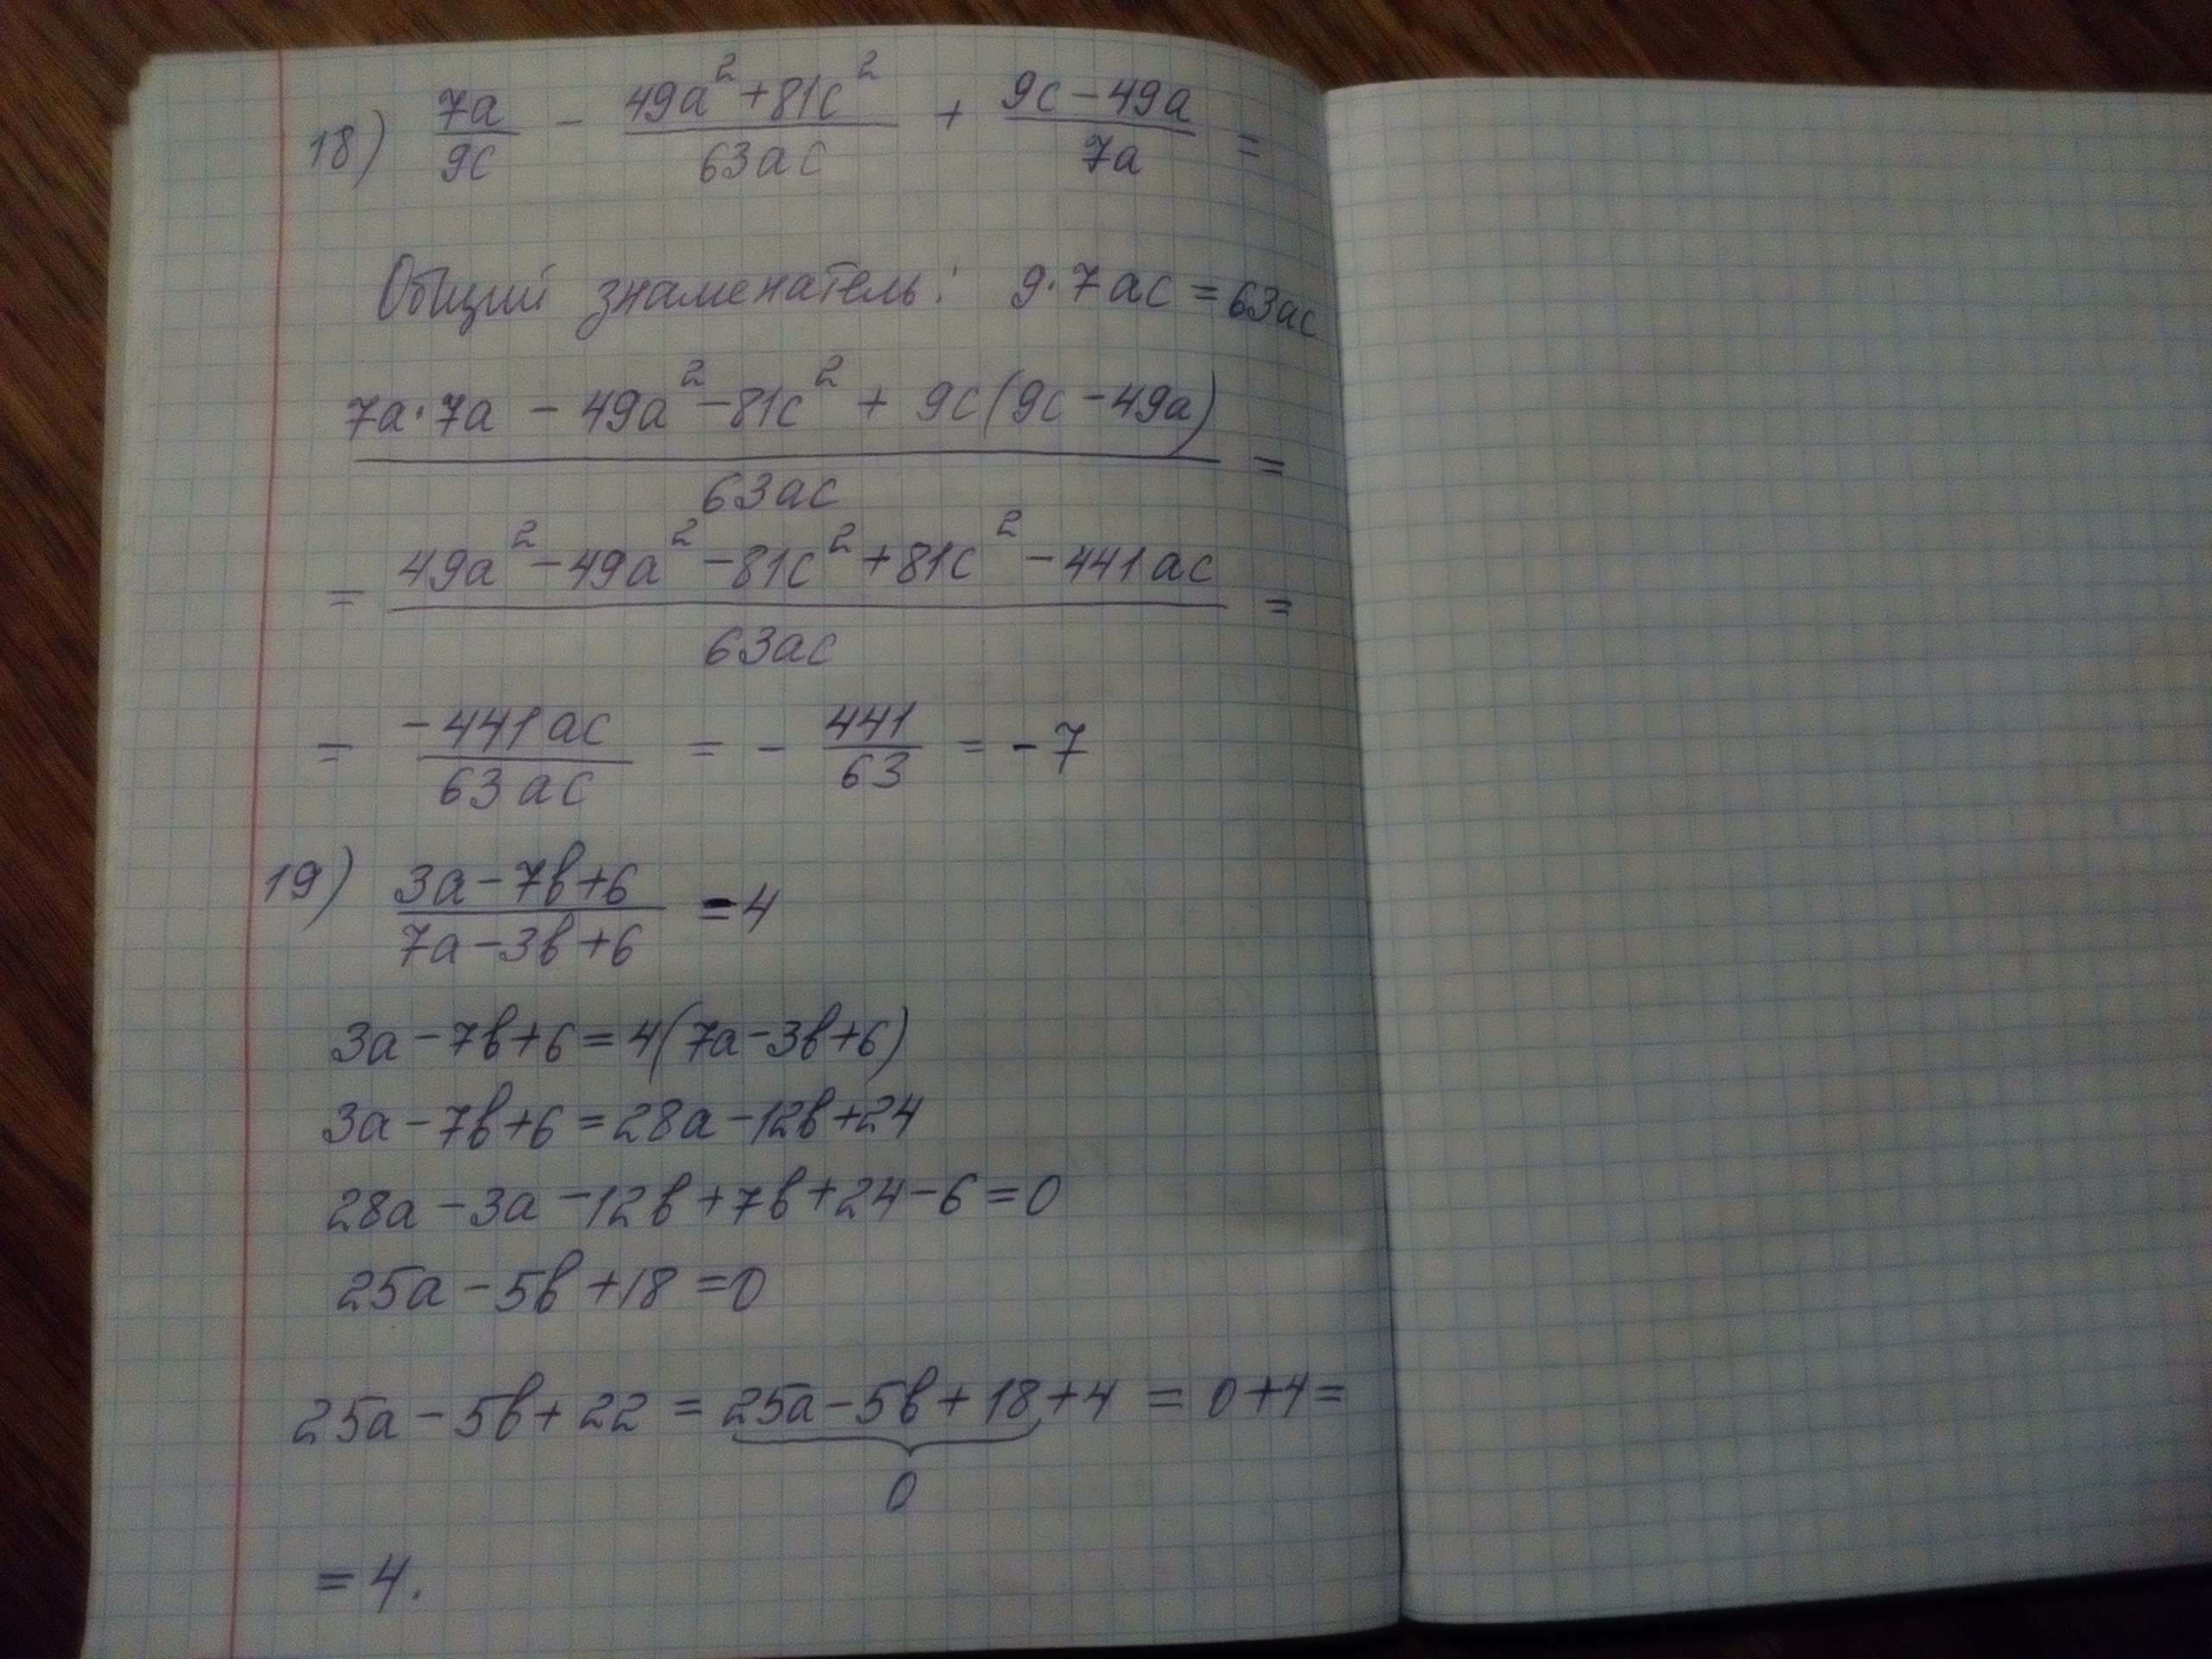 18) 7a/9c - (49a²+81c²)/63ac + (9c-49a)/7a =
Общий знаменатель: 9·7ac = 63ac
(7a·7a - 49a²-81c² + 9c(9c-49a))/63ac =
= (49a²-49a²-81c²+81c²-441ac)/63ac =
= -441ac/63ac = - 441/63 = -7
19) (3a-7b+6)/(7a-3b+6) = 4
3a-7b+6=4(7a-3b+6)
3a-7b+6=28a-12b+24
28a-3a-12b+7b+24-6=0
25a-5b+18=0
25a-5b+22 = 25a-5b+18+4 = 0+4=
0
= 4.